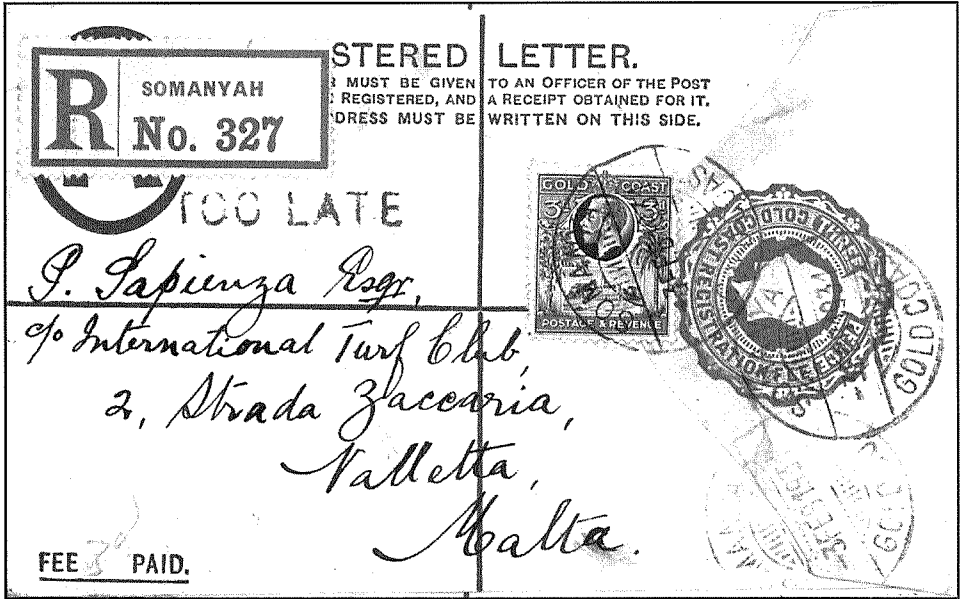 STERED LETTER.
MUST BE GIVEN TO AN OFFICER OF THE POST
REGISTERED, AND A RECEIPT OBTAINED FOR IT.
DRESS MUST BE WRITTEN ON THIS SIDE.
R
SOMANYAH
No. 327
TOO LATE
GOLD COAST
3D 3D
POSTAGE & REVENUE
GOLD COAST REGISTRATION FEE
GOLD COAS
P. Sapienza Esqr,
c/o International Turf Club,
2, Strada Zaccaria,
Valletta,
Malta.
FEE PAID.